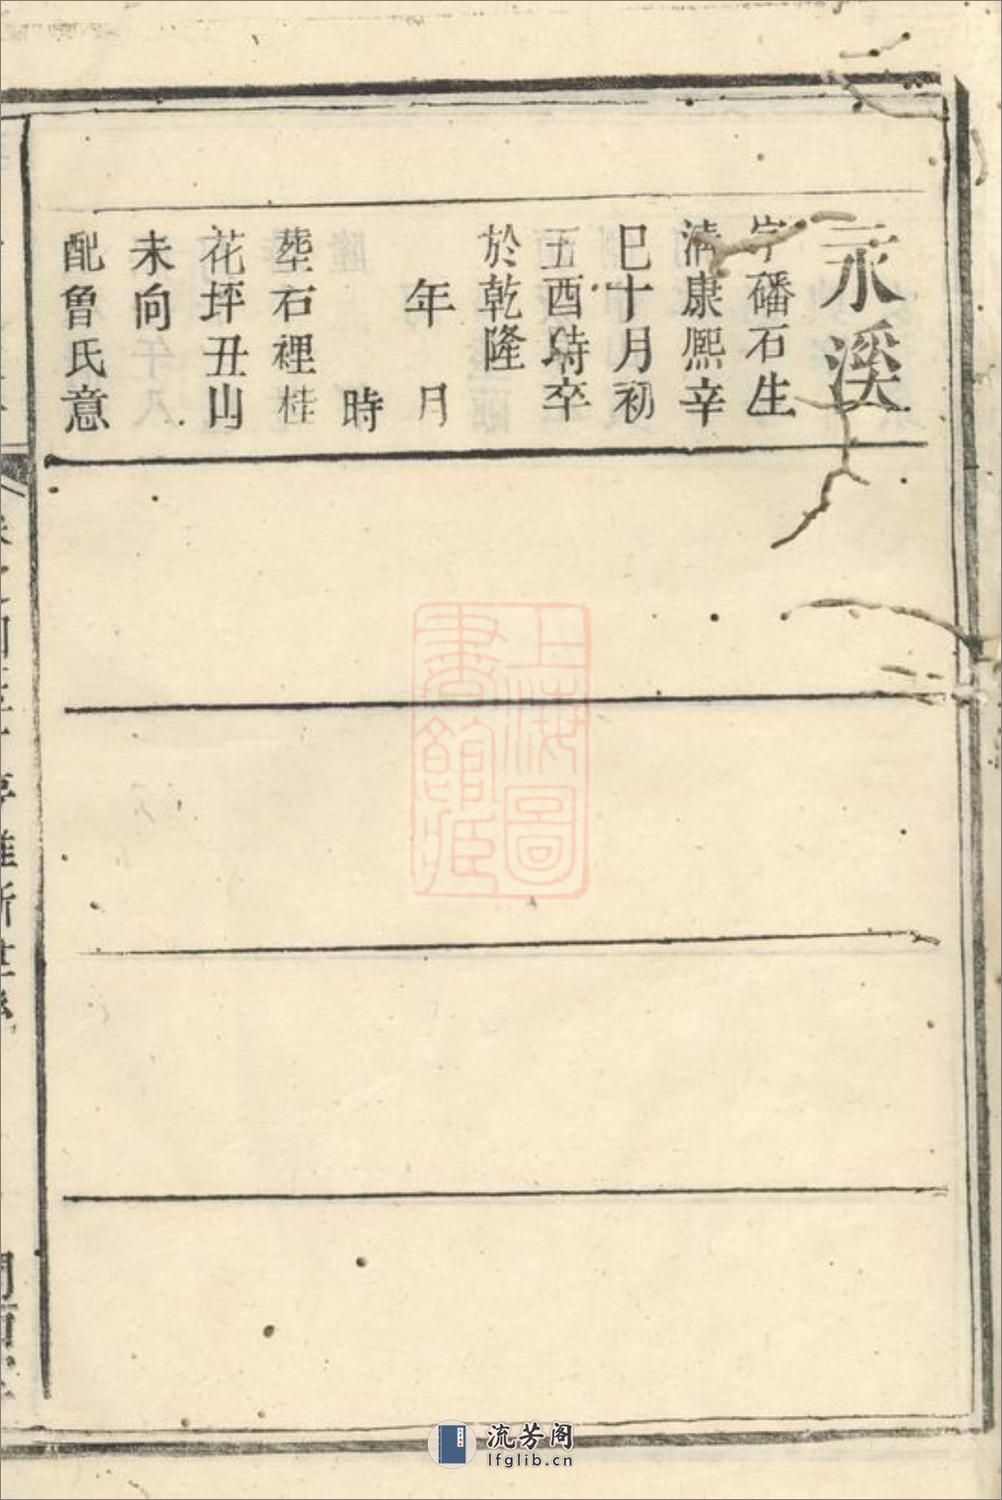 永溪
字磻石生
清康熙辛
巳十月初
五酉時卒
於乾隆
年月
時
塟石裡桂
花坪丑山
未向
配魯氏意
上海圖
書館藏
流芳阁
lfglib.cn